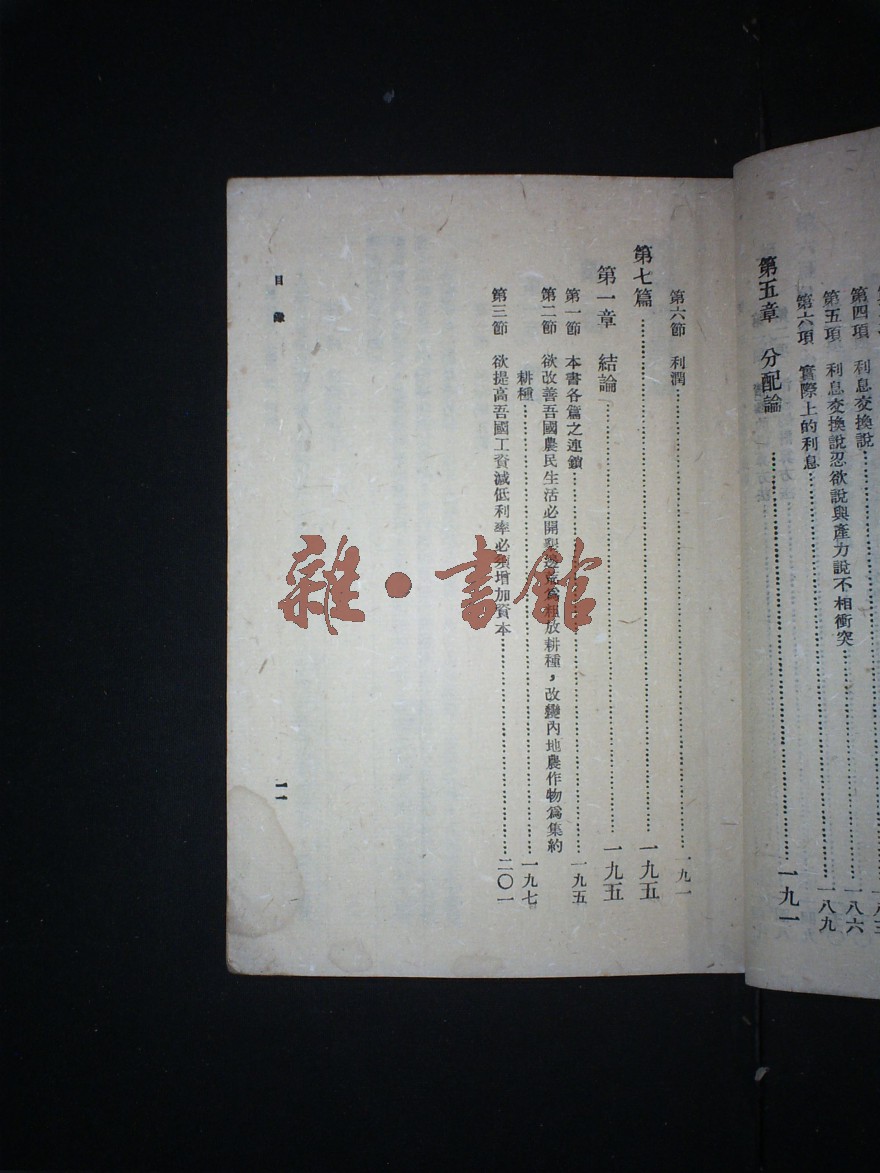 第四項　利息交換說……一八六
第五項　利息交換說忍欲說與產力說不相衝突……一八九
第六項　實際上的利息
第五章　分配論……一九一
第六節　利潤……一九一
第七篇……一九五
第一章　結論……一九五
第一節　本書各篇之連鎖……一九五
第二節　欲改善吾國農民生活必開墾邊荒為粗放耕種，改變內地農作物為集約
耕種……一九七
第三節　欲提高吾國工資減低利率必須增加資本……二〇一
目錄
一一
雜·書館